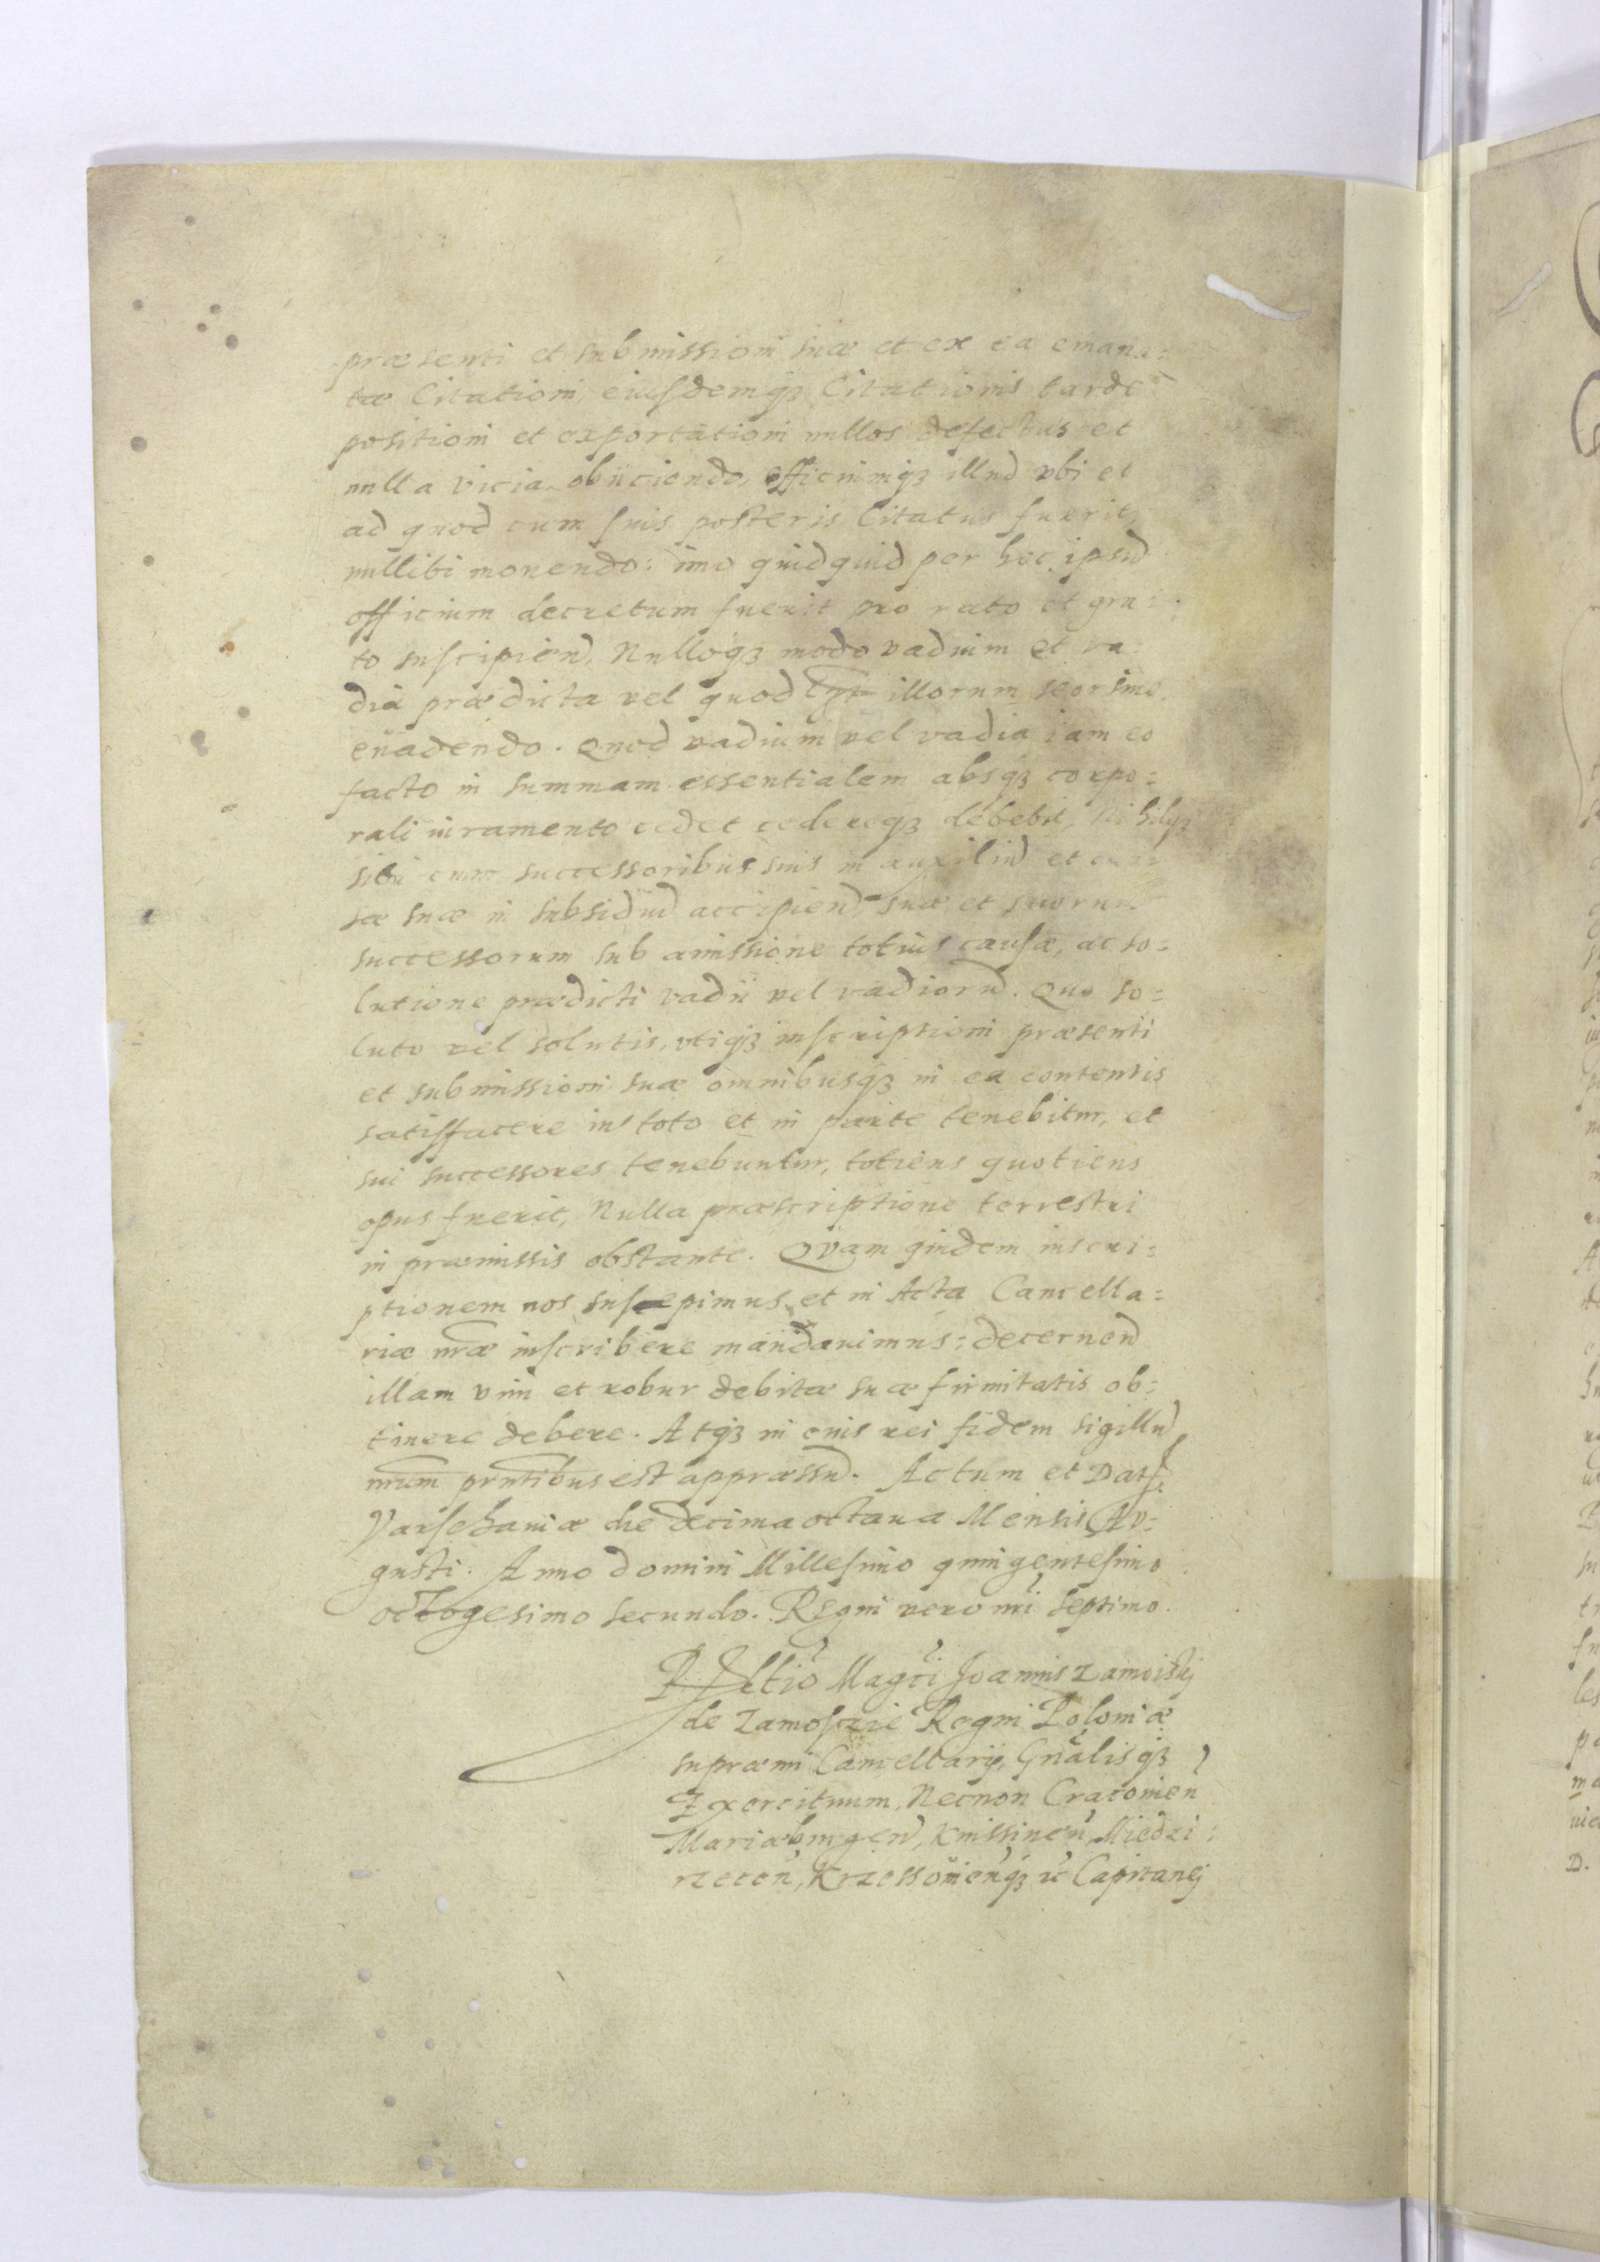 præsenti et submissioni suæ et ex ea emana=
tæ Citationi, eiusdemqȝ Citationis tardæ
positioni et exportationi nullos defectus et
nulla vicia obijciendo, officiumqȝ illud vbi et
ad quod cum suis posteris Citatus fuerit
nullibi monendo: imo quidquid per hoc ipsū
officium decretum fuerit pro rato et gra:
to suscipien̄, Nulloqȝ modo vadium et va
dia prædicta vel quod illorum seorsiue
euadendo. Quod vadium vel vadia iam eo
facto in summam essentialem absqȝ corpo=
rali iuramento cedet cedereqȝ debebit, Nihilqȝ
sibi cum successoribus suis in auxiliū et
sæ suæ in subsidiū accipien̄, suæ et suorum
successorum sub amissione totius causæ, ac so=
lutione prædicti vadij vel vadiorū. Quo so=
luto vel solutis, vtiqȝ inscriptioni præsenti
et submissioni suæ omnibusqȝ in ea contentis
satisfacere in toto et in parte tenebitur, et
sui successores tenebuntur, totiens quotiens
opus fuerit, Nulla præscriptione terrestri
in præmissis obstante. Quam quidem inscri=
ptionem nos suscepimus et in Acta Cancella=
riæ nr̄æ inscribere mandauimus: decernen̄
illam vim et robur debitæ suæ firmitatis ob=
tinere debere. Atqȝ in cuius rei fidem sigillū
nr̄um prn̄tibus est appræssū. Actum et Dat
Varschauiæ die decima octaua Mensis Au=
gusti. Anno domini Millesimo quingentesimo
octogesimo secundo. Regni vero nr̄i septimo.
Rel̄tio Magc̄i Joannis Zamoiskj
de Zamoscie Regni Poloniæ
supræmi Cancellarij, Gn̄alisqȝ
Exercituum, Necnon Cracouien̄
Mariæburgen̄, Knissinen̄, Miedzi:
rzecen̄, Krzessouienqȝ ꝛc Capitanej